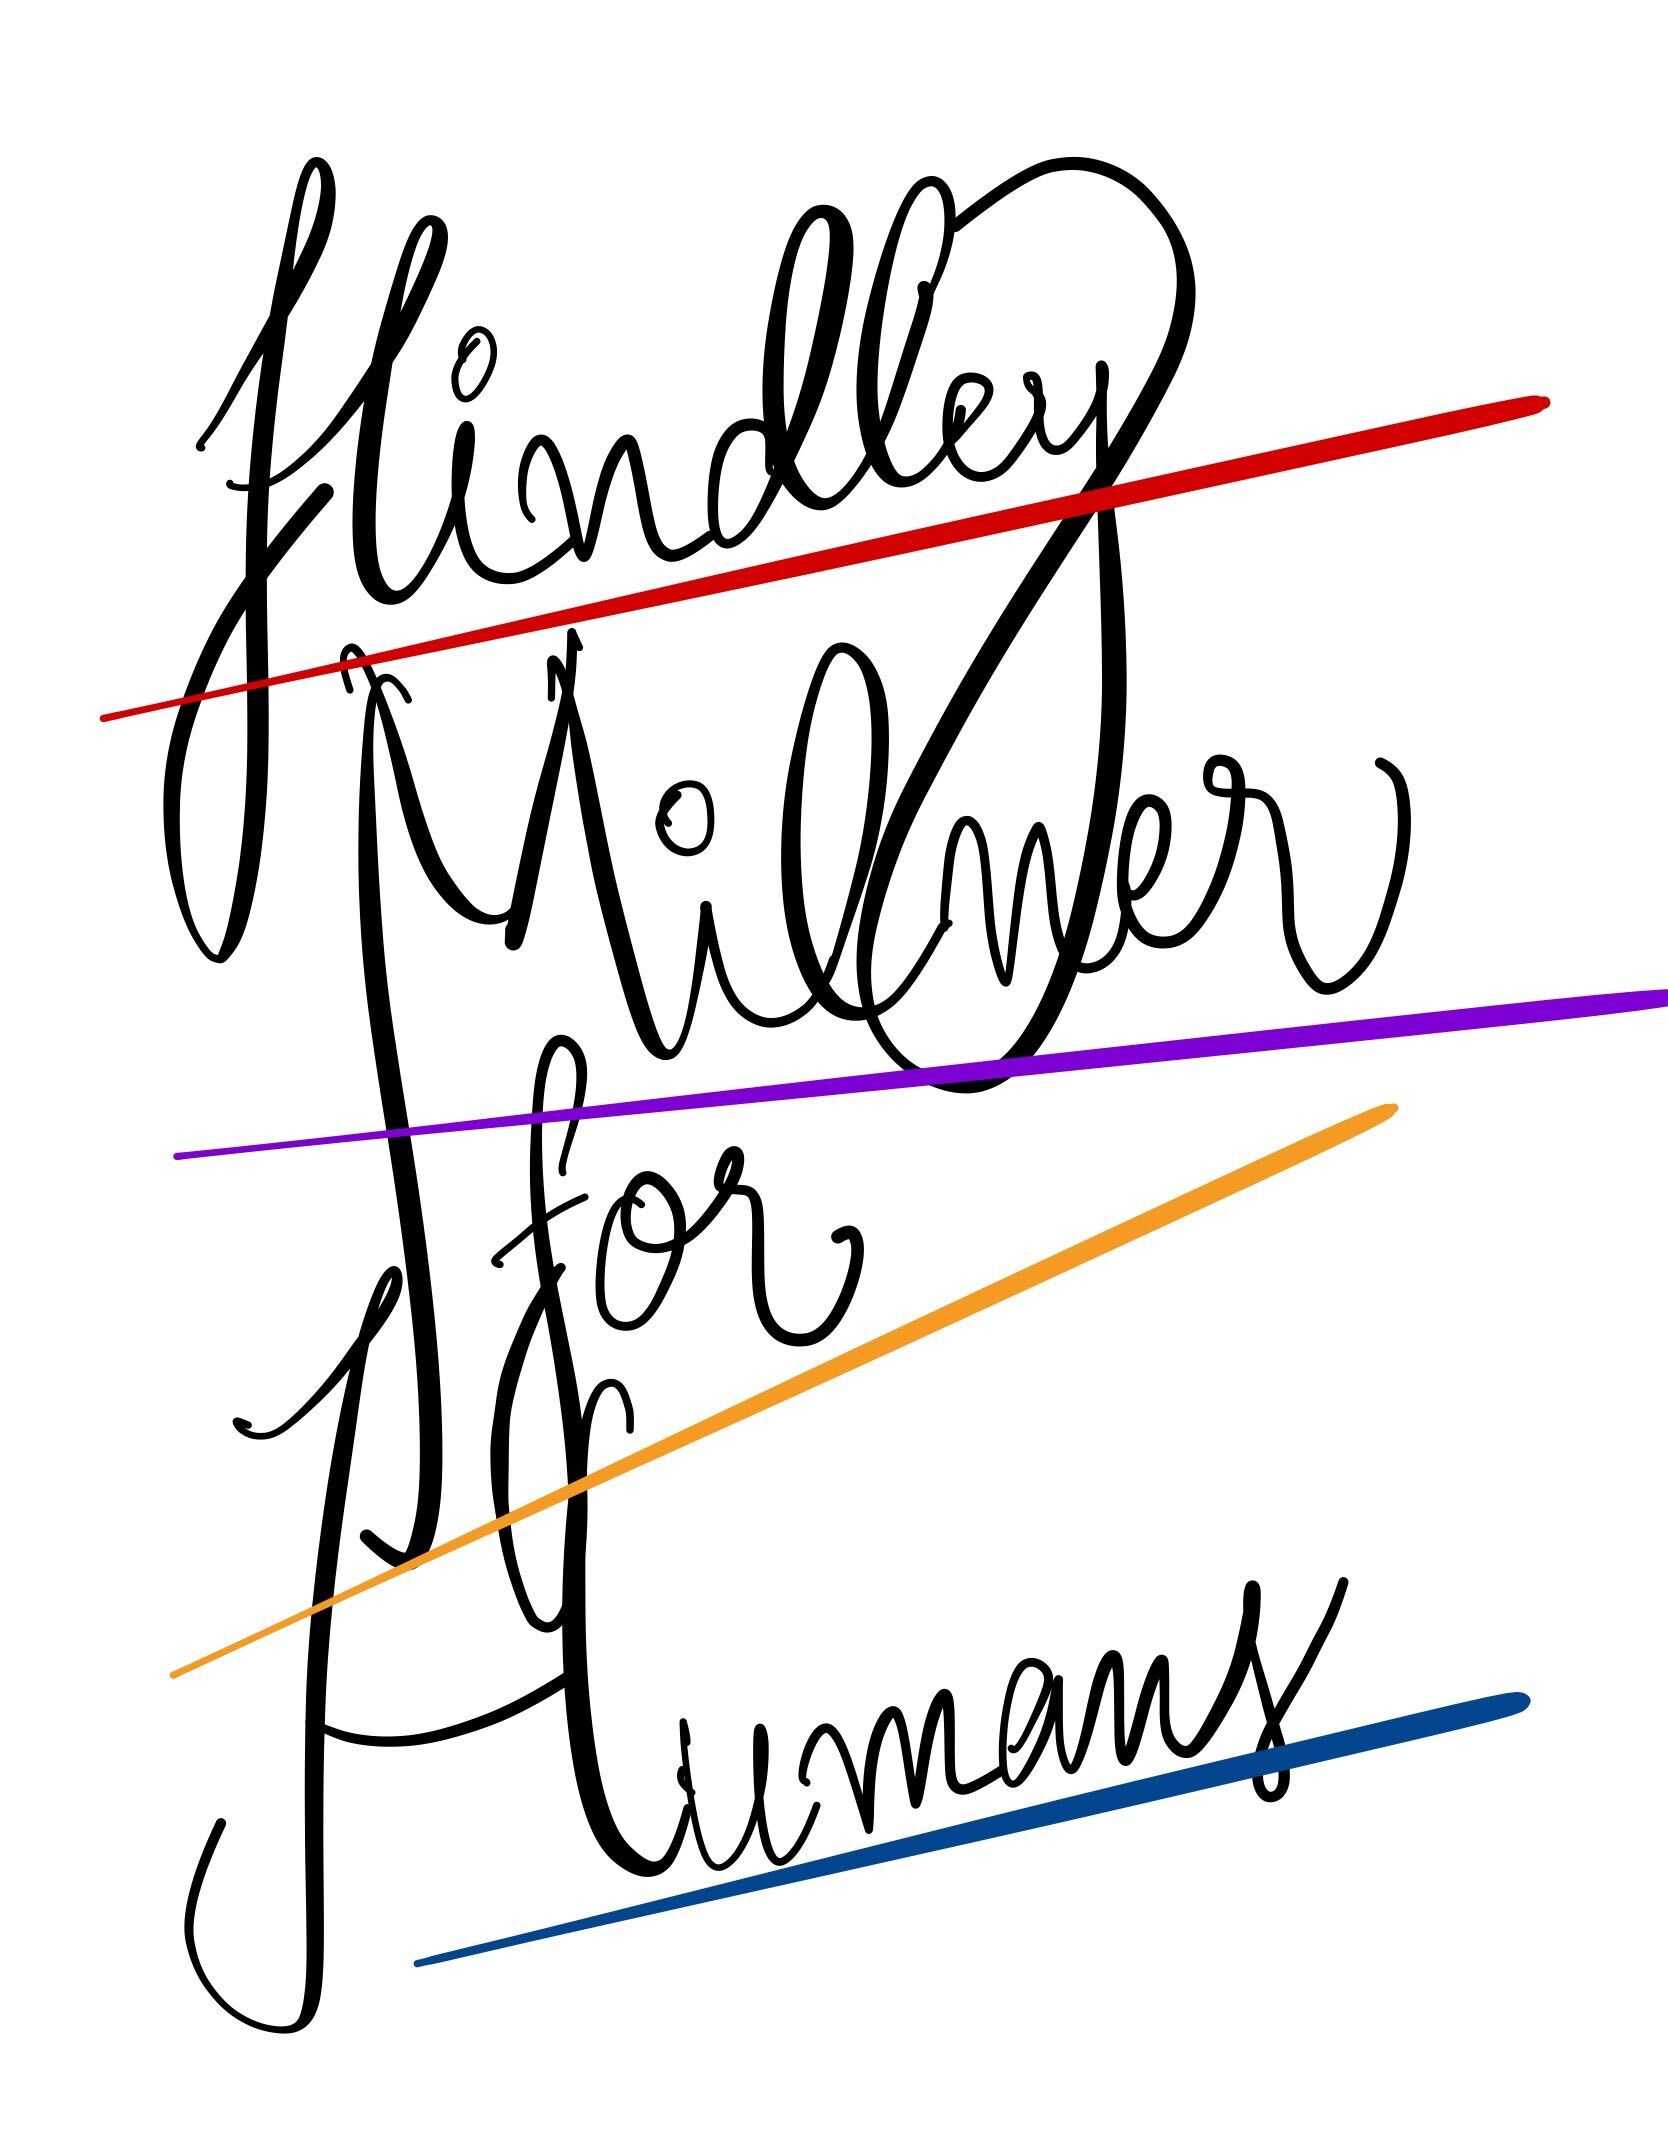 Hindley
Milner
for
Humans